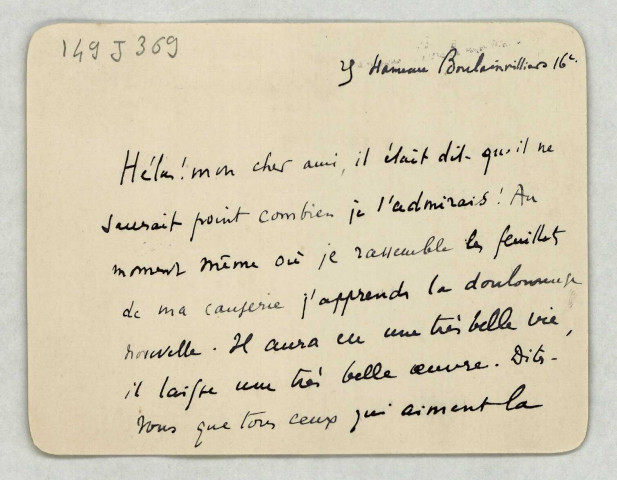 149 J 369
25 Hameau Boulainvilliers 16e.
Hélas! mon cher ami, il était dit qu'il ne
saurait point combien je l'admirais! Au
moment même où je rassemble les feuillets
de ma causerie j'apprends la douloureuse
nouvelle. Il aura eu une très belle vie,
il laisse une très belle œuvre. Dites-
vous que tous ceux qui aiment la